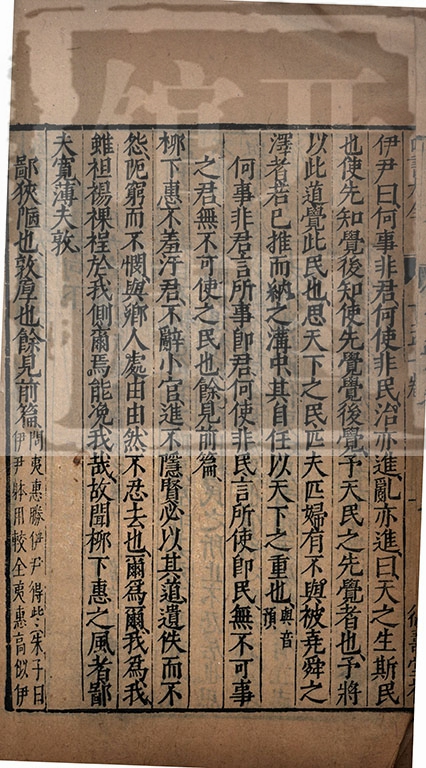 伊尹曰何事非君何使非民治亦進亂亦進曰天之生斯民
也使先知覺後知使先覺覺後覺予天民之先覺者也予將
以此道覺此民也思天下之民匹夫匹婦有不與被堯舜之
澤者若已推而納之溝中其自任以天下之重也與音預
何事非君言所事即君何使非民言所使即民無不可事
之君無不可使之民也餘見前篇
栁下惠不羞汙君不辭小官進不隱賢必以其道遺佚而不
怨阨窮而不憫與鄉人處由由然不忍去也爾為爾我為我
雖袒裼裸裎於我側爾焉能浼我哉故聞栁下惠之風者鄙
夫寬薄夫敦
鄙狹陋也敦厚也餘見前篇問夷惠勝伊尹得些朱子曰
伊尹躰用較全夷惠高似伊